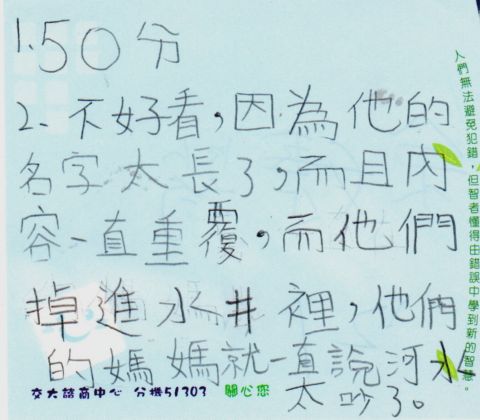 1.50分
2.不好看，因為他的
名字太長了，而且內
容一直重覆，而他們
掉進水井裡，他們
的媽媽就一直說河水
太吵了。
交大諮商中心 分機51303 關心您
人們無法避免犯錯，但智者懂得由錯誤中學到新的智慧。